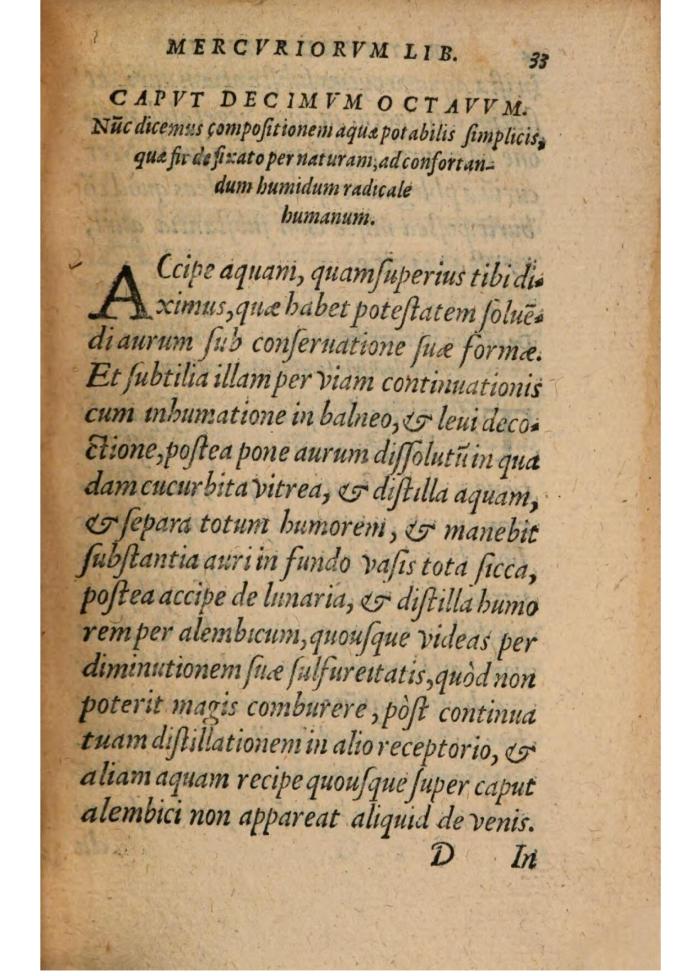 MERCVRIORVM LIB. 33
CAPVT DECIMVM OCTAVVM.
Nũc dicemus compositionem aquæ potabilis simplicis,
quæ fit de fixato per naturam, ad confortan-
dum humidum radicale
humanum.
ACcipe aquam, quam superius tibi di-
ximus, quæ habet potestatem soluẽ-
di aurum sub conseruatione suæ formæ.
Et subtilia illam per viam continuationis
cum inhumatione in balneo, & leui deco-
ctione, postea pone aurum dissolutũ in qua
dam cucurbita vitrea, & distilla aquam,
& separa totum humorem, & manebit
substantia auri in fundo vasis tota sicca,
postea accipe de lunaria, & distilla humo
rem per alembicum, quousque videas per
diminutionem suæ sulfureitatis, quòd non
poterit magis comburere, pòst continua
tuam distillationem in alio receptorio, &
aliam aquam recipe quousque super caput
alembici non appareat aliquid de venis.
D In